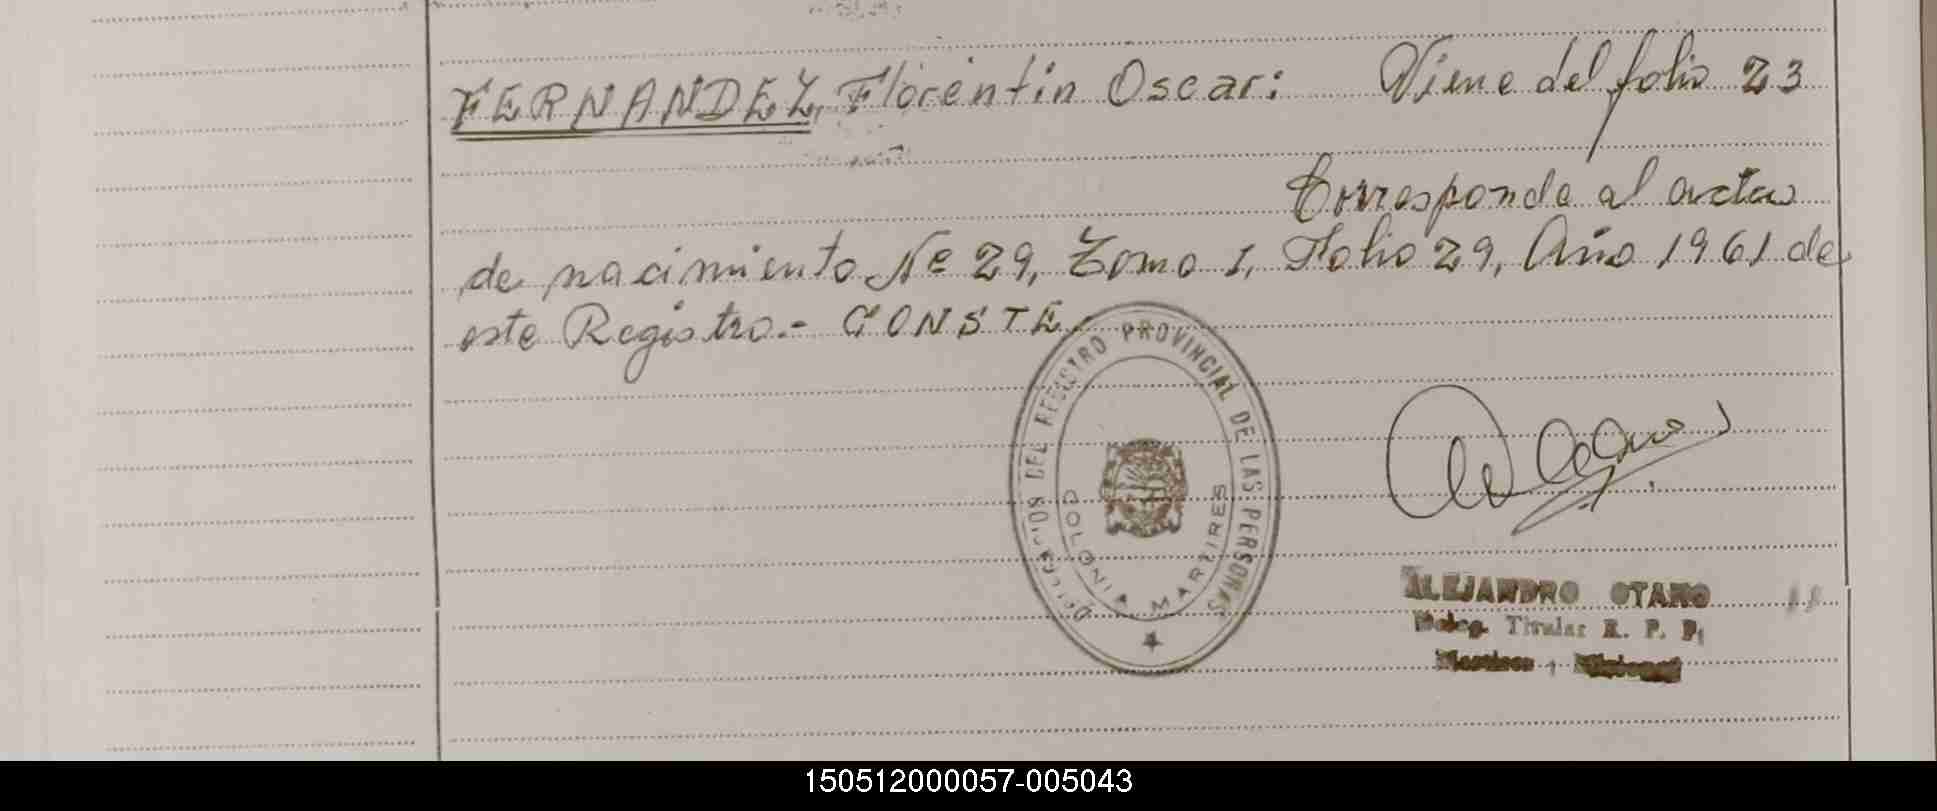 FERNANDEZ, Florentin Oscar: Viene del folio 23
Corresponde al acta
de nacimiento Nº 29, Tomo 1, Folio 29, Año 1961 de
este Registro.- CONSTE
DEL REGISTRO PROVINCIAL DE LAS PERSONAS
COLONIA MARTIRES
ALEJANDRO OTAÑO
Deleg. Titular R. P. P.
150512000057-005043